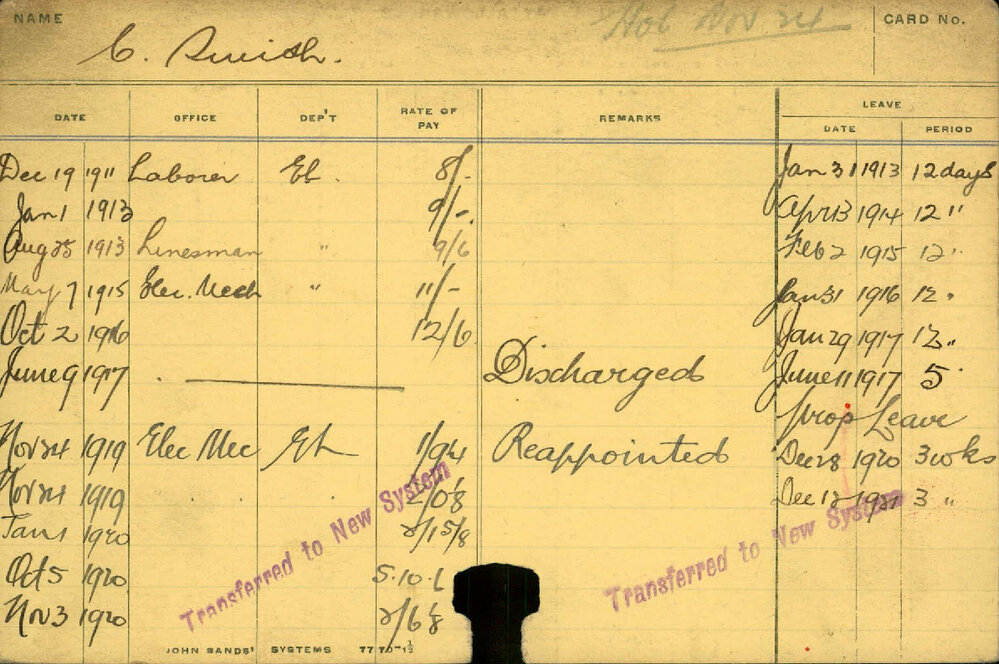 NAME
CARD No.
C. Smith.
Hol Nov 24
DATE OFFICE DEP'T RATE OF PAY REMARKS LEAVE DATE PERIOD
Dec 19 1911 Laborer El. 8/- Jan 31 1913 12 days
Jan 1 1913 9/- Apr 13 1914 12 "
Aug 25 1913 Linesman " 9/6 Feb 2 1915 12 "
May 7 1915 Elec. Mech " 11/- Jan 31 1916 12 "
Oct 2 1916 12/6 Jan 29 1917 12 "
June 9 1917 Discharged June 11 1917 5
prop Leave
Nov 24 1919 Elec Mec El Reappointed Dec 28 1920 3 wks
Nov 24 1919 2/0/8 Dec 12 1921 3 "
Jan 1 1920 2/15/8
Oct 5 1920
Nov 3 1920
Transferred to New System
Transferred to New System
JOHN SANDS' SYSTEMS